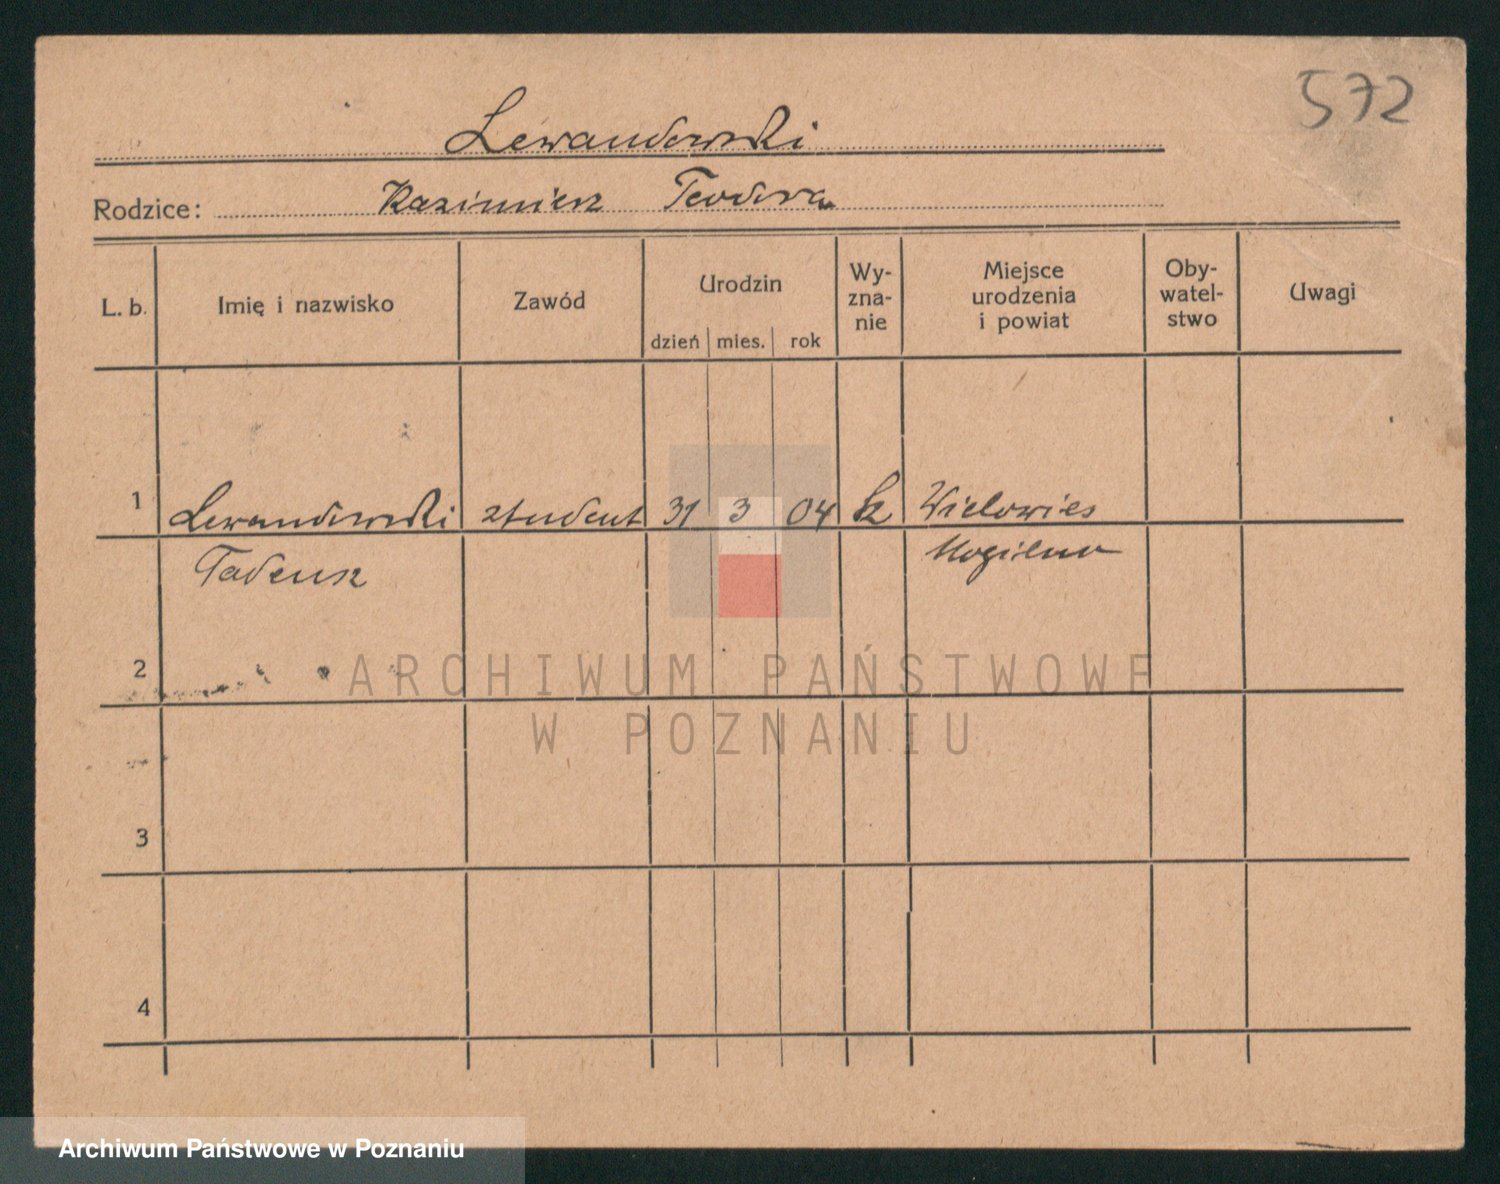 572
Lewandowski
Rodzice: Kazimierz Teodora
L. b. Imię i nazwisko Zawód Urodzin dzień mies. rok Wy-zna-nie Miejsce urodzenia i powiat Oby-watel-stwo Uwagi
1 Lewandowski student 31 3 04 k Wielowieś
Tadeusz Mogilno
2
ARCHIWUM PAŃSTWOWE
W POZNANIU
3
4
Archiwum Państwowe w Poznaniu